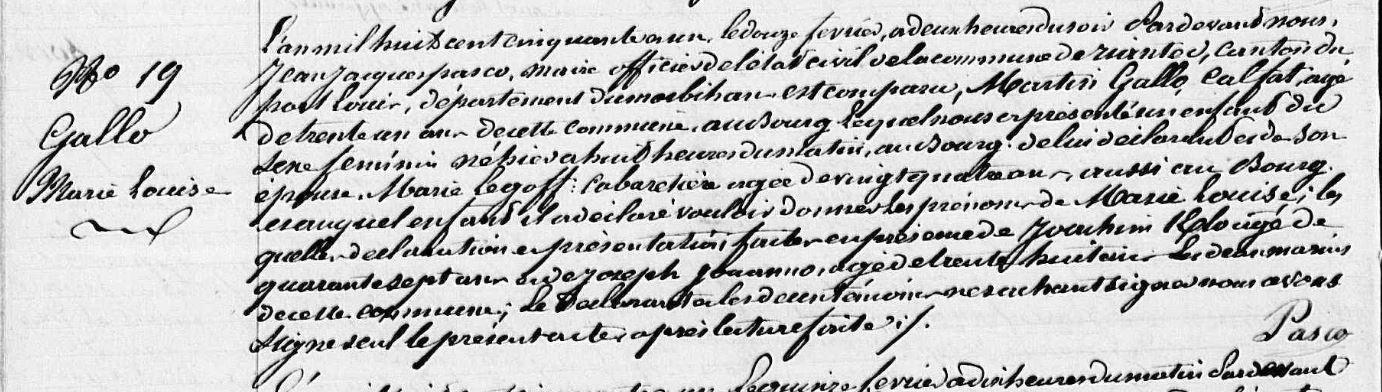 N° 19
Gallo
Marie Louise
L'an mil huit cent cinquante un, le douze fevrier, a deux heures du soir Pardevant nous,
Jean Jacques pasco, maire officier de l'état civil de la commune de riantec, canton du
port Louis, département du morbihan est comparu, Martin Gallo, calfat, agé
de trente un ans de cette commune, au Bourg lequel nous a présenté un enfant du
sexe feminin né hier a huit heures du matin, au Bourg de lui déclarant et de son
épouse, Marie Legoff, cabaretière agée de vingt quatre ans, aussi au Bourg
et auquel enfant il a déclaré vouloir donner les prénoms de Marie Louise; les
quelles declaration et présentation faites en présence de Joachim agé de
quarante sept ans et de Joseph Joanno, agé de trente huit ans les deux marins
de cette commune; le Declarant et les deux témoins ne sachant signer nous avons
signé seul le présent acte après lecture faite ./.
Pasco
Le quinze fevrier a dix heures du matin Pardevant